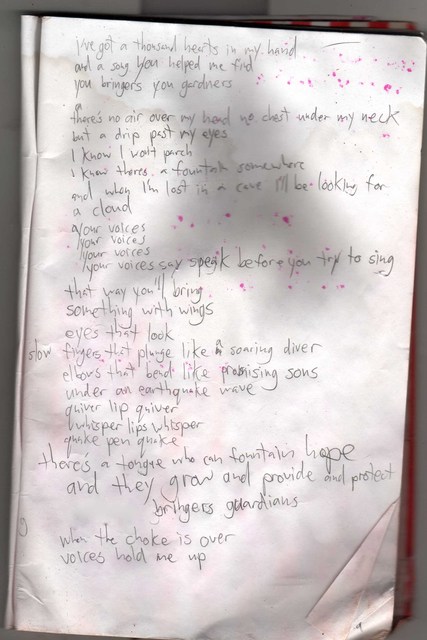 i've got a thousand hearts in my hand
and a song you helped me find
you bringers you gardners
a
there's no air over my head no chest under my neck
but a drip past my eyes
I know I won't parch
I know theres a fountain somewhere
and when I'm lost in a cave I'll be looking for
a cloud
your voices
your voices
your voices
your voices say speak before you try to sing
that way you'll bring
something with wings
eyes that look
slow fingers that plunge like a soaring diver
elbows that bend like promising sons
under an earthquake wave
quiver lip quiver
whisper lips whisper
quake pen quake
there's a tongue who can fountain hope
and they grow and provide and protect
bringers guardians
when the choke is over
voices hold me up